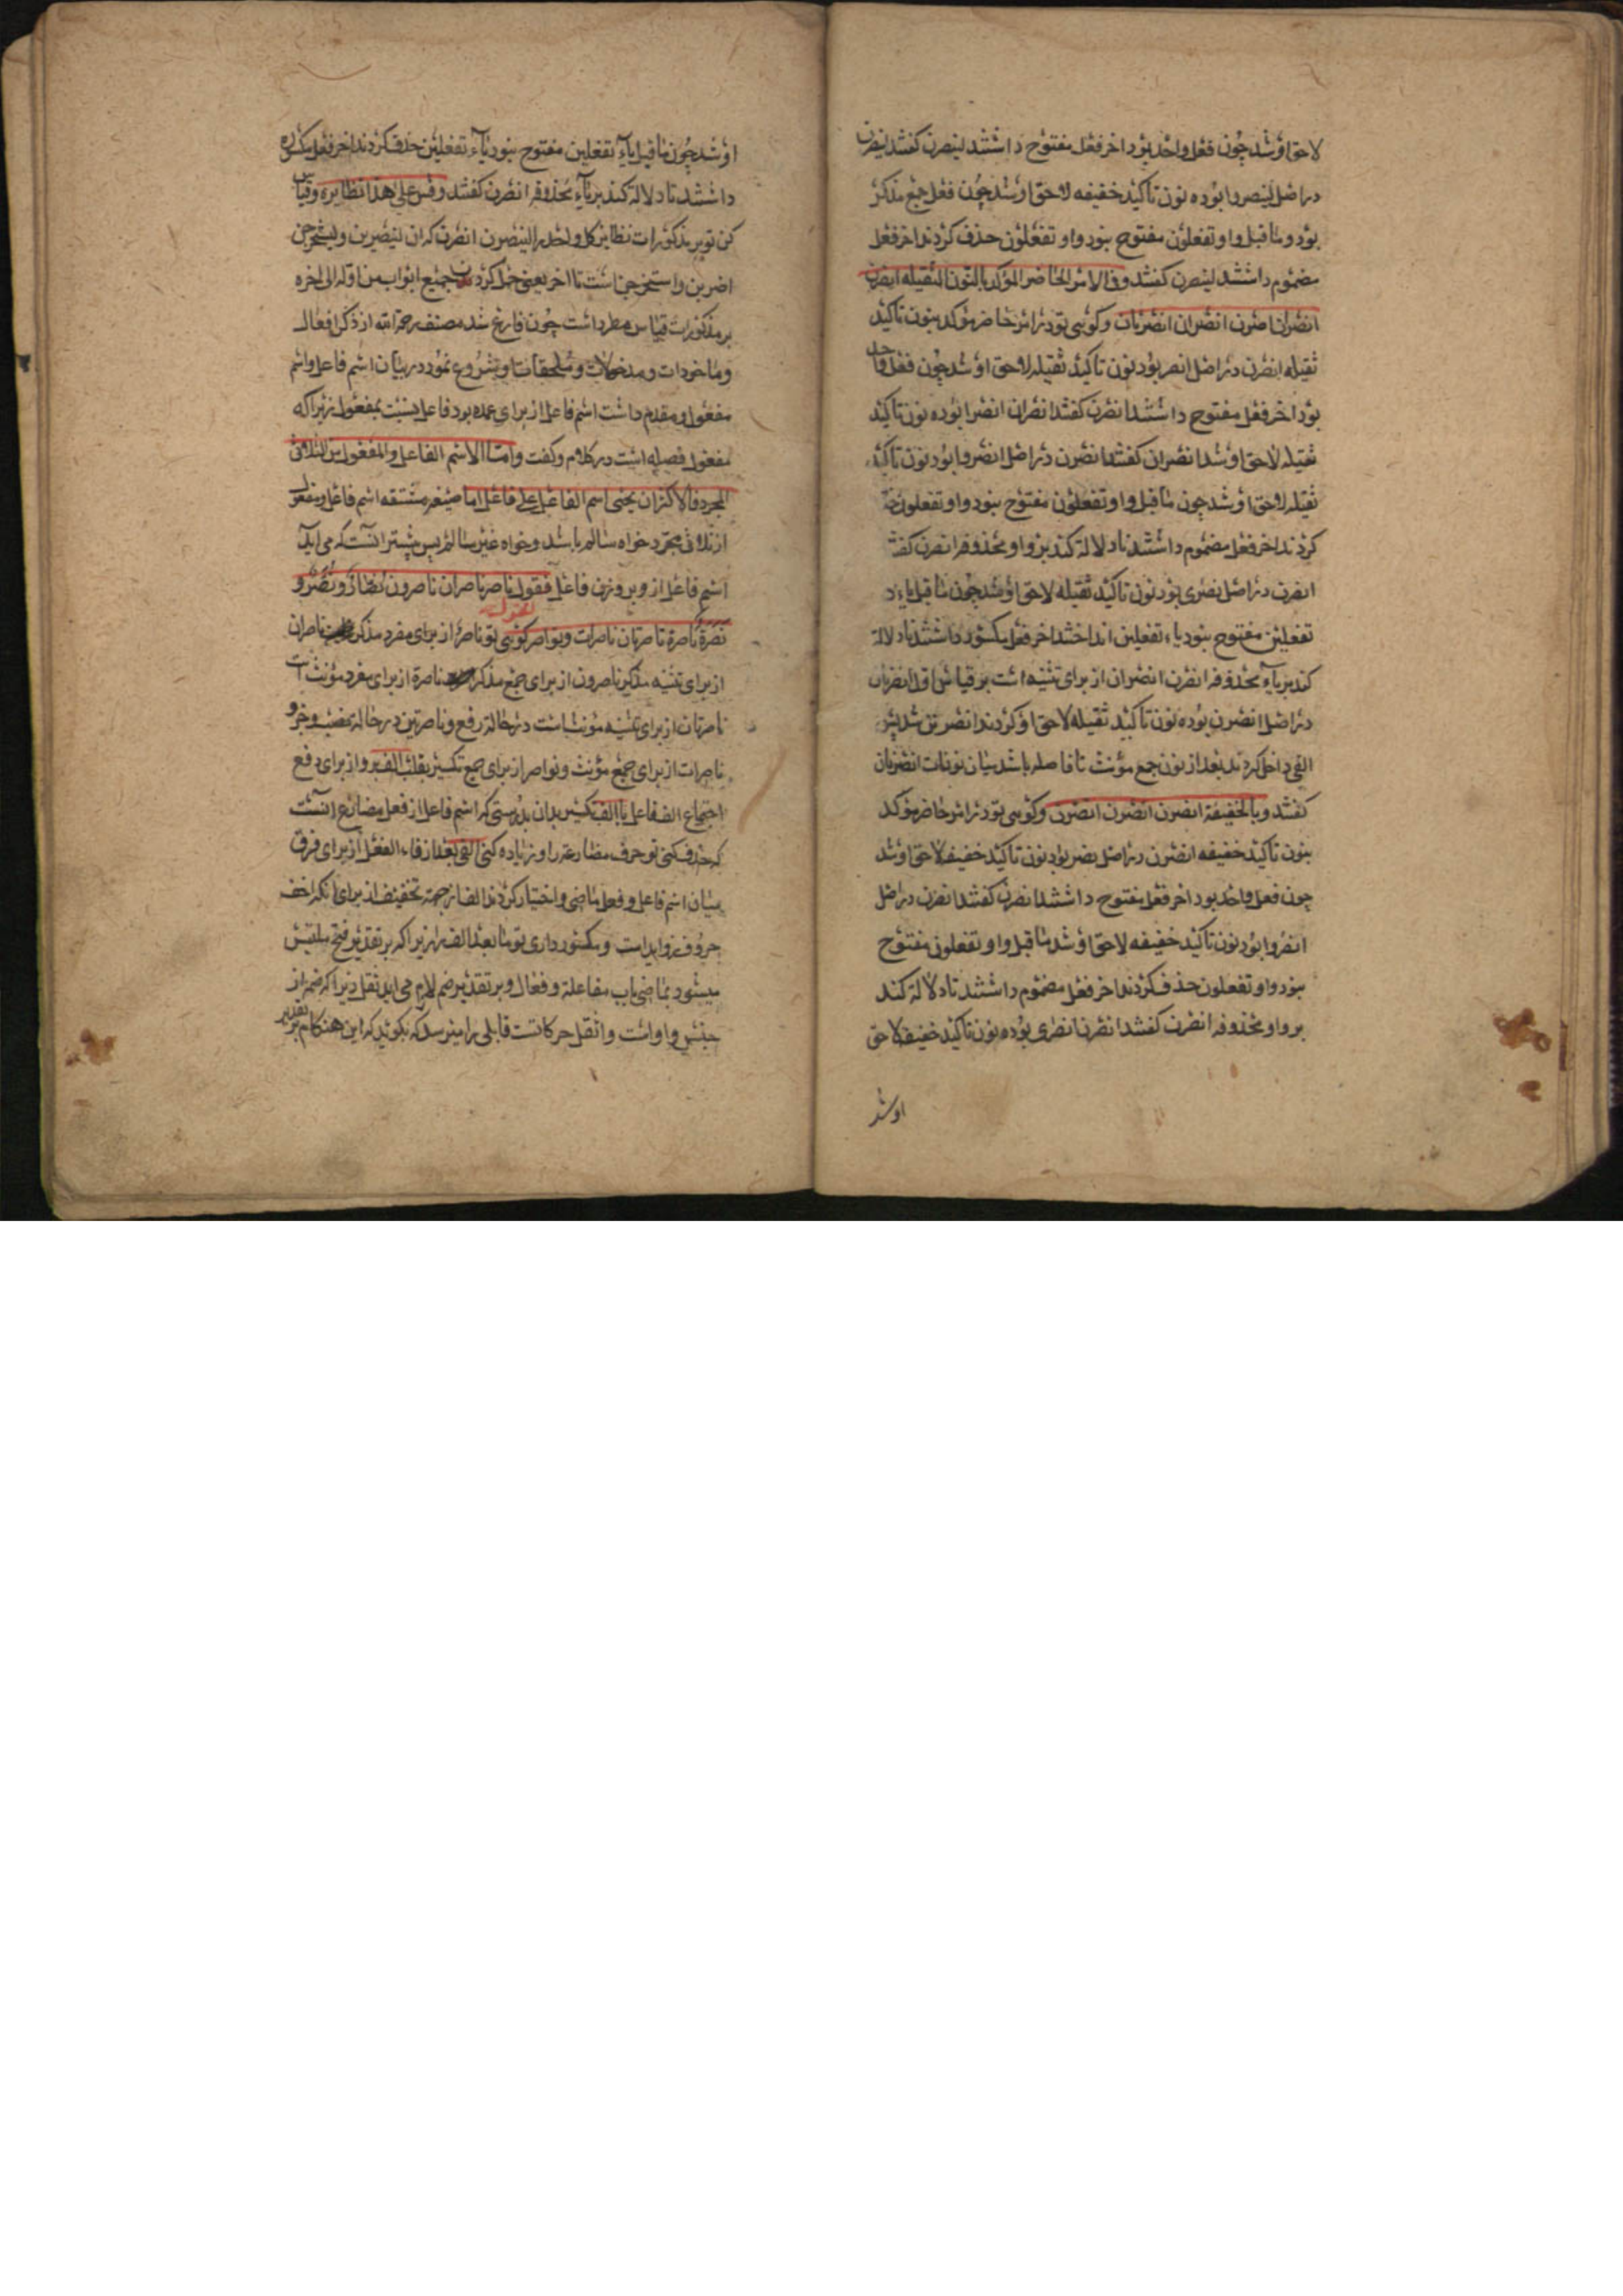 لاحق او شد چون فعل واحد بود اخر فعل مفتوح داشتند لینصرن کفتند لینصرن
دراصل لینصروا بوده نون تاکید خفیفه لاحق او شد چون فعل جمع مذکر
بود و ماقبل واو تفعلون مفتوح نبود واو تفعلون حذف کردند اخر فعل
مضموم داشتند لینصرن کفتند وفی الامر الحاضر المؤکد بالنون الثقیله انصرن
انصران انصرن انصرن انصران انصرنان وکوئی تو در امر حاضر مؤکد بنون تاکید
ثقیله انصرن دراصل انصر بود نون تاکید ثقیله لاحق او شد چون فعل واحد
بود اخر فعل مفتوح داشتند انصرن کفتند انصران انصرا بوده نون تاکید
ثقیله لاحق او شد انصران کفتند انصرن دراصل انصروا بود نون تاکید
ثقیله لاحق او شد چون ماقبل واو تفعلون مفتوح نبود واو تفعلون حذف
کردند اخر فعل مضموم داشتند تا دلالة کند بر واو محذوفه انصرن کفتند
انصرن دراصل انصری بود نون تاکید ثقیله لاحق او شد چون ماقبل یاء
تفعلین مفتوح نبود یاء تفعلین انداختند اخر فعل مکسور داشتند تا دلالة
کند بر یاء محذوفه انصرن انصران از برای تثنیه است بر قیاس اول انصرنان
دراصل انصرن بوده نون تاکید ثقیله لاحق او کردند انصرنن شد پس
الفی داخل کردند بعد از نون جمع مؤنث تا فاصله باشد میان نونات انصرنان
کفتند وبالخفیفة انصرن انصرن انصرن وکوئی تو در امر حاضر مؤکد
بنون تاکید خفیفه انصرن دراصل انصر بود نون تاکید خفیفه لاحق او شد
چون فعل واحد بود اخر فعل مفتوح داشتند انصرن کفتند انصرن دراصل
انصروا بود نون تاکید خفیفه لاحق او شد ماقبل واو تفعلون مفتوح
نبود واو تفعلون حذف کردند اخر فعل مضموم داشتند تا دلالة کند
بر واو محذوفه انصرن کفتند انصرن انصری بوده نون تاکید خفیفه لاحق
او شد
او شد چون ماقبل یاء تفعلین مفتوح نبود یاء تفعلین حذف کردند اخر فعل مکسور
داشتند تا دلالة کند بر یاء محذوفه انصرن کفتند وقس علی هذا نظایره وقیاس
کن تو بر مذکورات نظایر کل واحد را لینصرن انصرن که ان لیضربن ولیستخرجن
اضربن واستخرجن است تا اخر یعنی حمل کردن جمیع ابواب من اوله الی اخره
بر مذکورات قیاس مطرد است چون فارغ شد مصنف رحمة الله از ذکر افعال
وماخوذات ومدخولات وملحقات او شروع نمود در بیان اسم فاعل واسم
مفعول ومقدم داشت اسم فاعل از برای عمده بود فاعل نسبت بمفعول زیرا که
مفعول فضله است در کلام وکفت واما الاسم الفاعل والمفعول من الثلاثی
المجرد فالاکثر ان یجئ اسم الفاعل علی فاعل اما صیغه مشتقه اسم فاعل ومفعول
از ثلاثی مجرد خواه سالم باشد وخواه غیر سالم پس بیشتر انست که می اید
اسم فاعل از و بر وزن فاعل فتقول ناصر ناصران ناصرون نصار ونصر و
نصرة ناصرة ناصرتان ناصرات ونواصر کوئی تو ناصر از برای مفرد مذکر ناصران
از برای تثنیه مذکر ناصرون از برای جمع مذکر ناصرة از برای مفرد مؤنث است
ناصرتان از برای تثنیه مؤنث است در حالة رفع وناصرتین در حالة نصب وجر و
ناصرات از برای جمع مؤنث ونواصر از برای جمع تکسیر بقلب الف بواو از برای دفع
اجتماع الف فاعل با الف تکسیر بدان بدرستی که اسم فاعل از فعل مضارع انست
که حذف کنی تو حرف مضارعة را و زیاده کنی الفی بعد از فاء الفعل از برای فرق
میان اسم فاعل وفعل ماضی واختیار کردند الف از جهة تخفیف از برای انکه اخف
حروف زواید است ومکسور داری تو مابعد الف را زیرا که بر تقدیر فتح ملتبس
میشود بماضی باب مفاعلة وفعال و بر تقدیر ضم لازم می اید ثقل زیرا که ضمه از
جنس واو است واثقل حرکاتست قابلی را میرسد که بکوید که این هنکام بر تقدیر